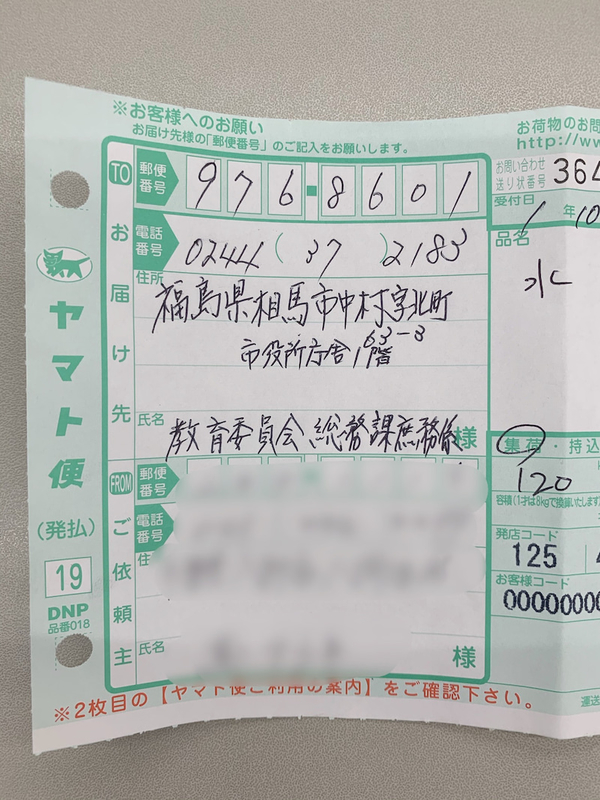 ※お客様へのお願い
お届け先様の「郵便番号」のご記入をお願いします。
お荷物のお問
http://ww
TO
郵便番号
976-8601
お問い合わせ
送り状番号
364
受付日
1年10
電話番号
0244(37)2183
品名
水
お届け先
住所
福島県相馬市中村字北町
63-3
市役所庁舎1階
氏名
教育委員会 総務課庶務係
様
ヤマト便
(発払)
19
DNP
品番018
集荷・持込
120
容積(1才は8kgで換算いたします)
発店コード
125
お客様コード
000000000
FROM
郵便番号
電話番号
ご依頼主
住
氏名
様
※2枚目の【ヤマト便ご利用の案内】をご確認下さい。
運送